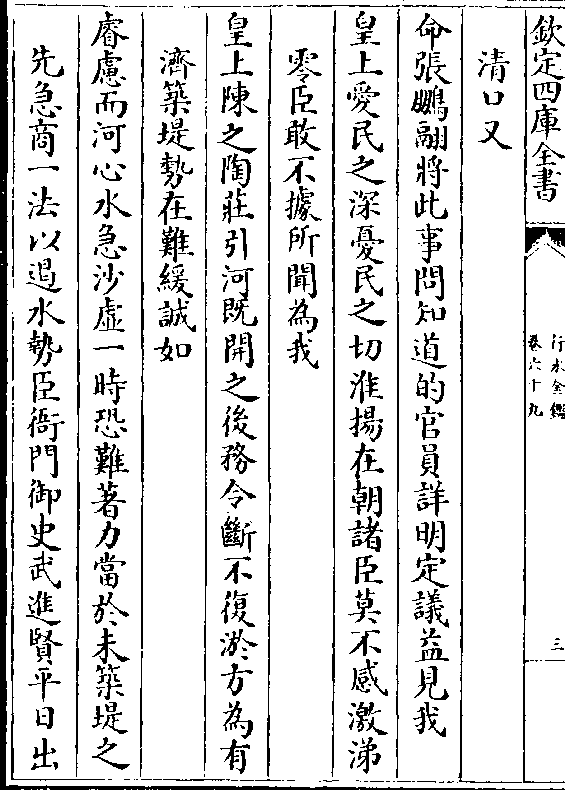 欽定四庫全書
行水金鑑
卷六十九
三
清口又
命張鵬翮將此事問知道的官員詳明定議益見我
皇上愛民之深憂民之切淮揚在朝諸臣莫不感激涕
零臣敢不據所聞為我
皇上陳之陶莊引河既開之後務令斷不復淤方為有
濟築堤勢在難緩誠如
睿慮而河心水急沙虛一時恐難著力當於未築堤之
先急商一法以遏水勢臣衙門御史武進賢平日出